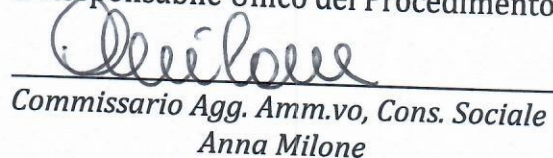 Responsabile Unico del Procedimento
Commissario Agg. Amm.vo, Cons. Sociale
Anna Milone